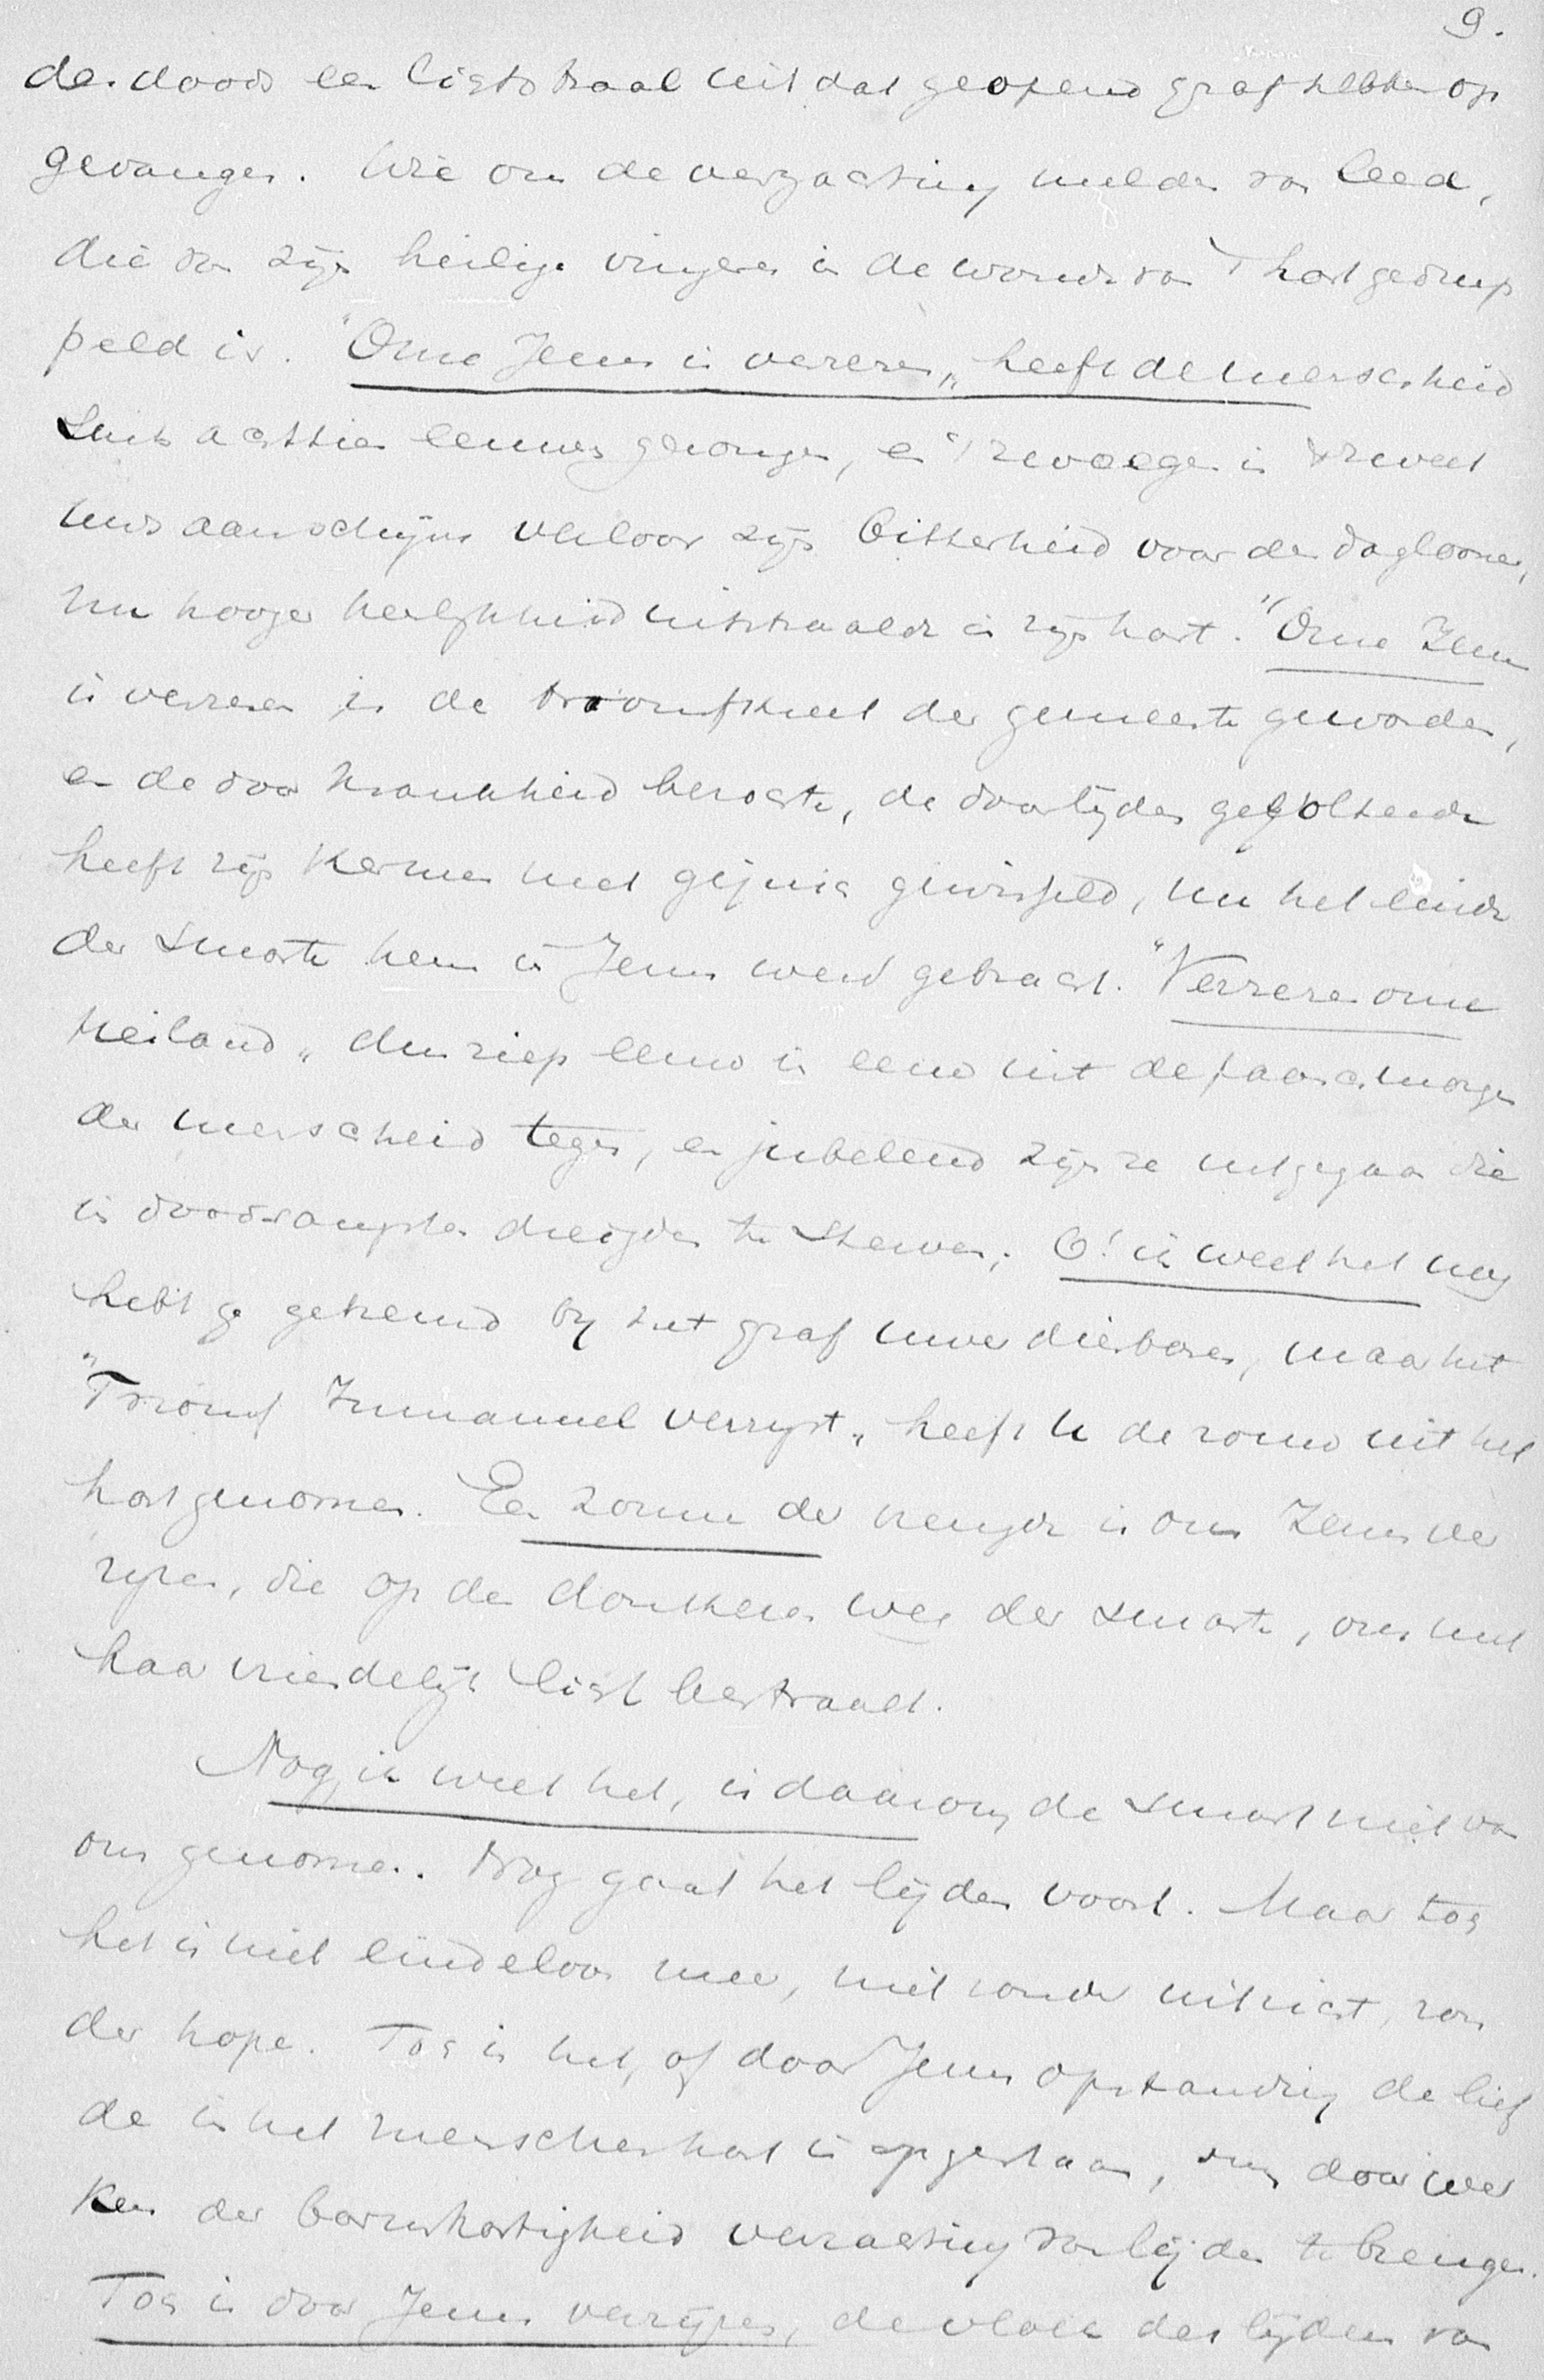 9.
des doods een lichtstraal uit dat geopend graf hebben op
gevangen. Wie ons de verzachting melden van leed,
die van zijn heilige vingeren in de wonde van 't hart gedrup
peld is. "Onze Jezus is verrezen" heeft de menscheid
sints achttien eeuwen gezongen, en 't zwoegen in 't zweet
uws aanschijns verloor zijn bitterheid voor den daglooner,
nu hooger heerlijkheid uitstraalde in zijn hart. "Onze Jezus
is verrezen is de triomfkreet der gemeente geworden,
en de door krankheid bezochte, de door lijden gefolterde
heeft zijn kermen met gejuich gewisseld, nu het einde
der smarte hem in Jezus werd gebracht. "Verrezen onze
Heiland" dus riep eeuw in eeuw uit de paaschmorgen
der menscheid tegen, en jubelend zijn ze uitgegaan die
in doodsangsten dreigden te sterven. O! ik weet het nog
hebt ge getreurd bij het graf uwer dierbaren, maar het
"Triomf Immanuel verrijst" heeft u de rouw uit het
hart genomen. Een zonne der vreugde is ons Jezus ver
rijzen, die op den donkeren weg der smarte, ons met
haar vriendelijk licht bestraalt.
Nog, ik weet het, is daarom de smart niet van
ons genomen. Nog gaat het lijden voort. Maar toch
het is niet eindeloos meer, niet zonder uitzicht, zon
der hope. Toch is het, of door Jezus opstanding de lief
de in het menschenhart is opgestaan, om door wer
ken der barmhartigheid verzachting van lijden te brengen.
Toch is door Jezus verrijzen, de vloek des lijdens van